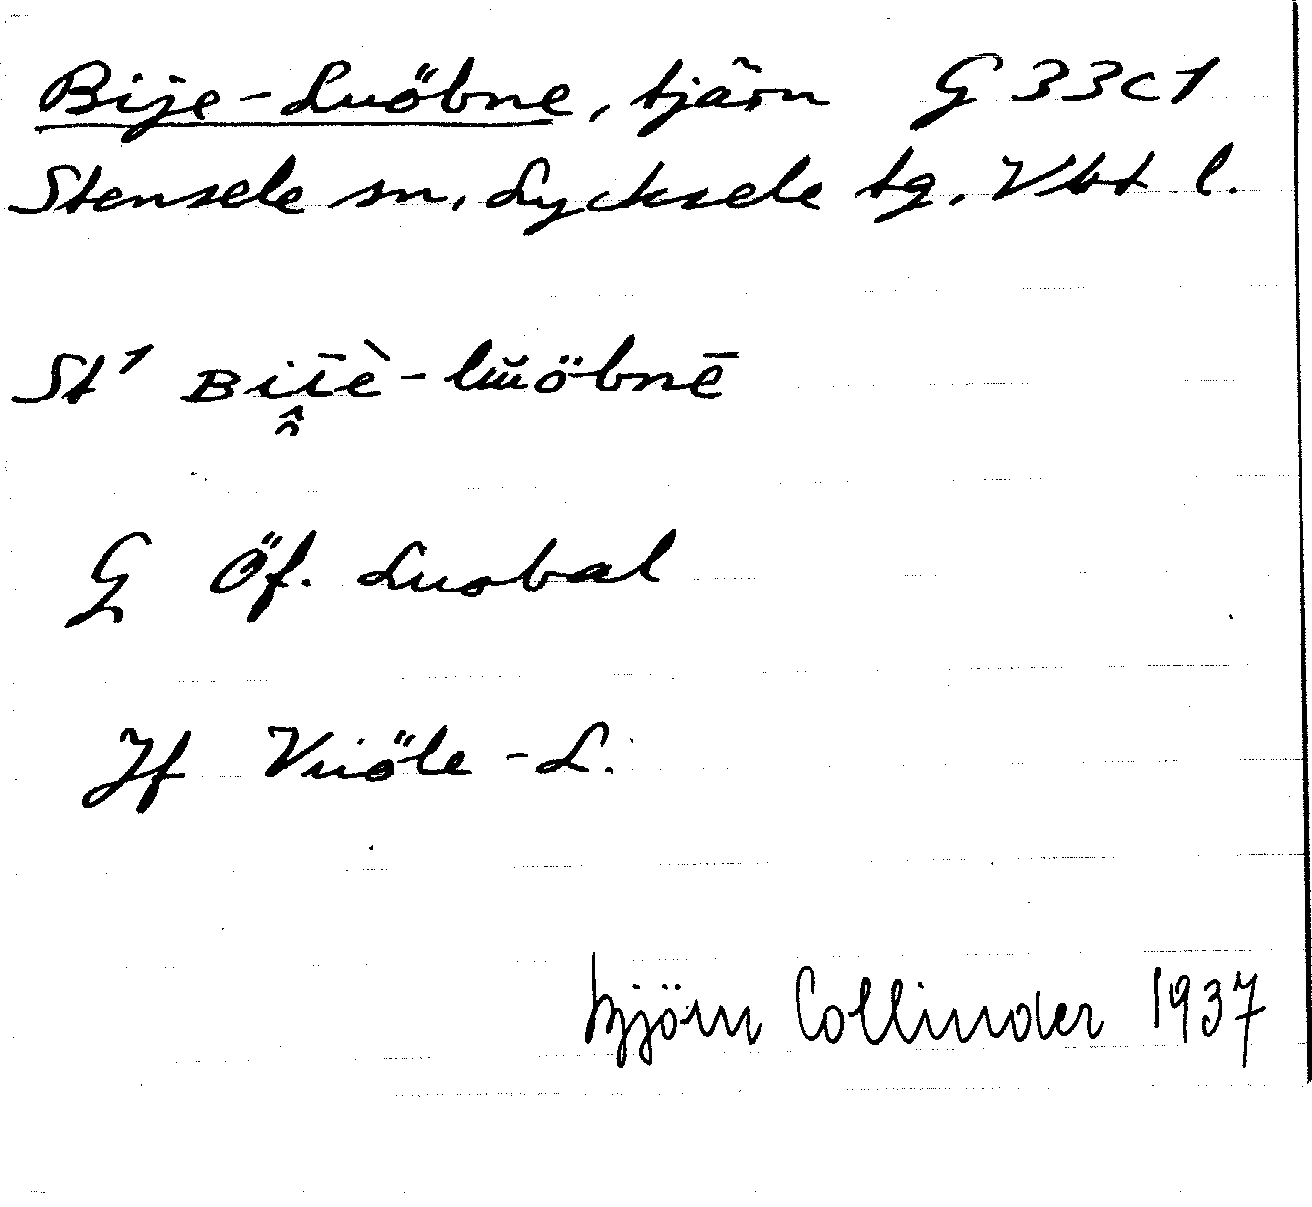 Bije-Luöbne, tjärn G 33c1
Stensele sn, Lycksele tg, Vbt l.
St1 -lŭöbnē
G Öf. Luobal
Jf Vuöle-L.
Björn Collinder 1937